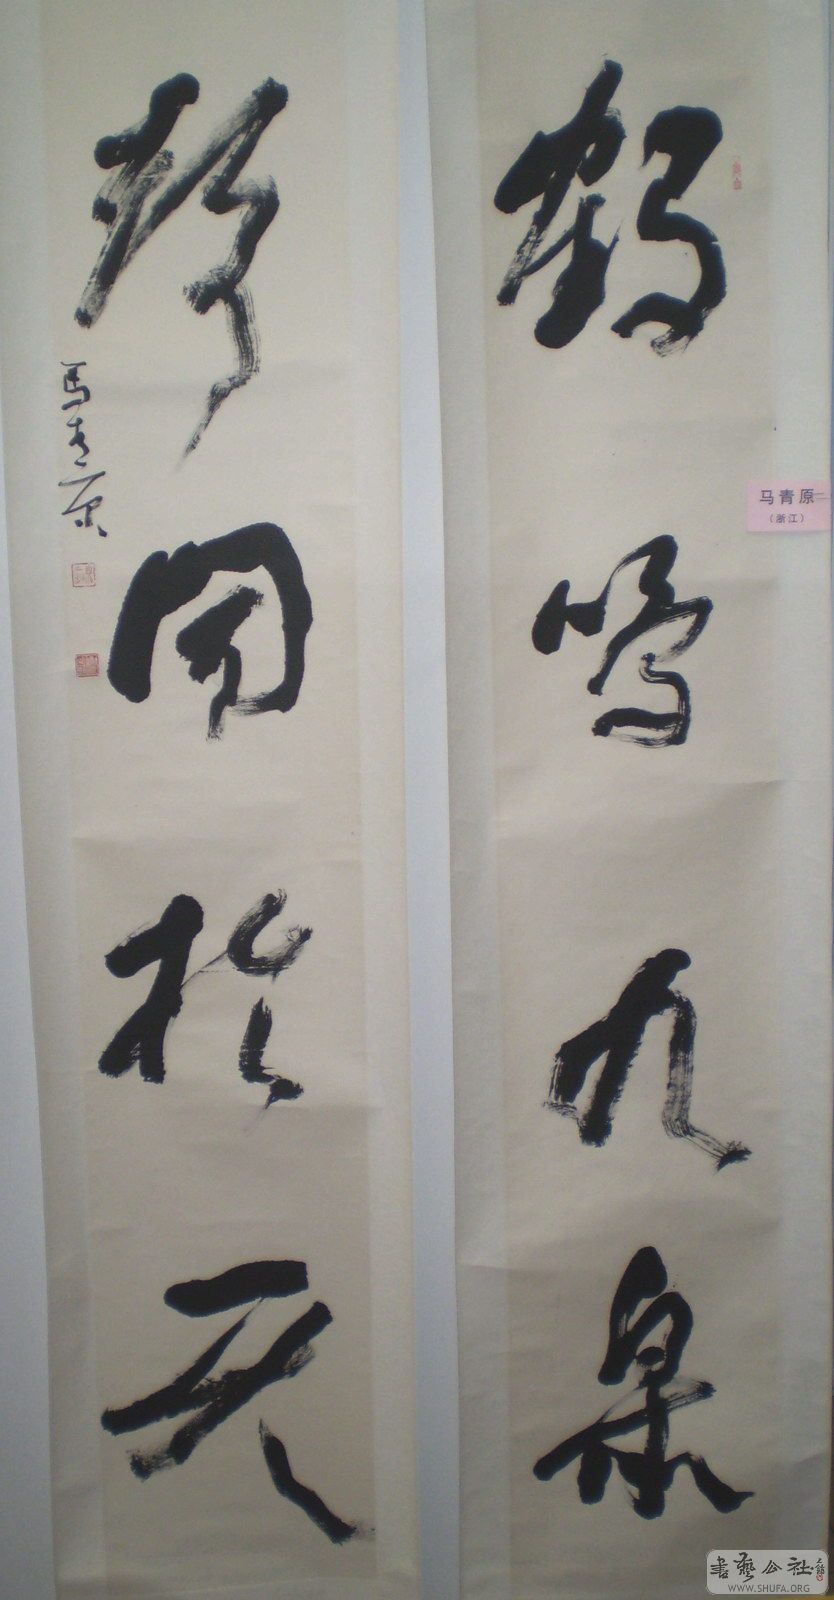 鶴鳴九皋
聲聞於天
馬青原
马青原
（浙江）
書藝公社
WWW.SHUFA.ORG